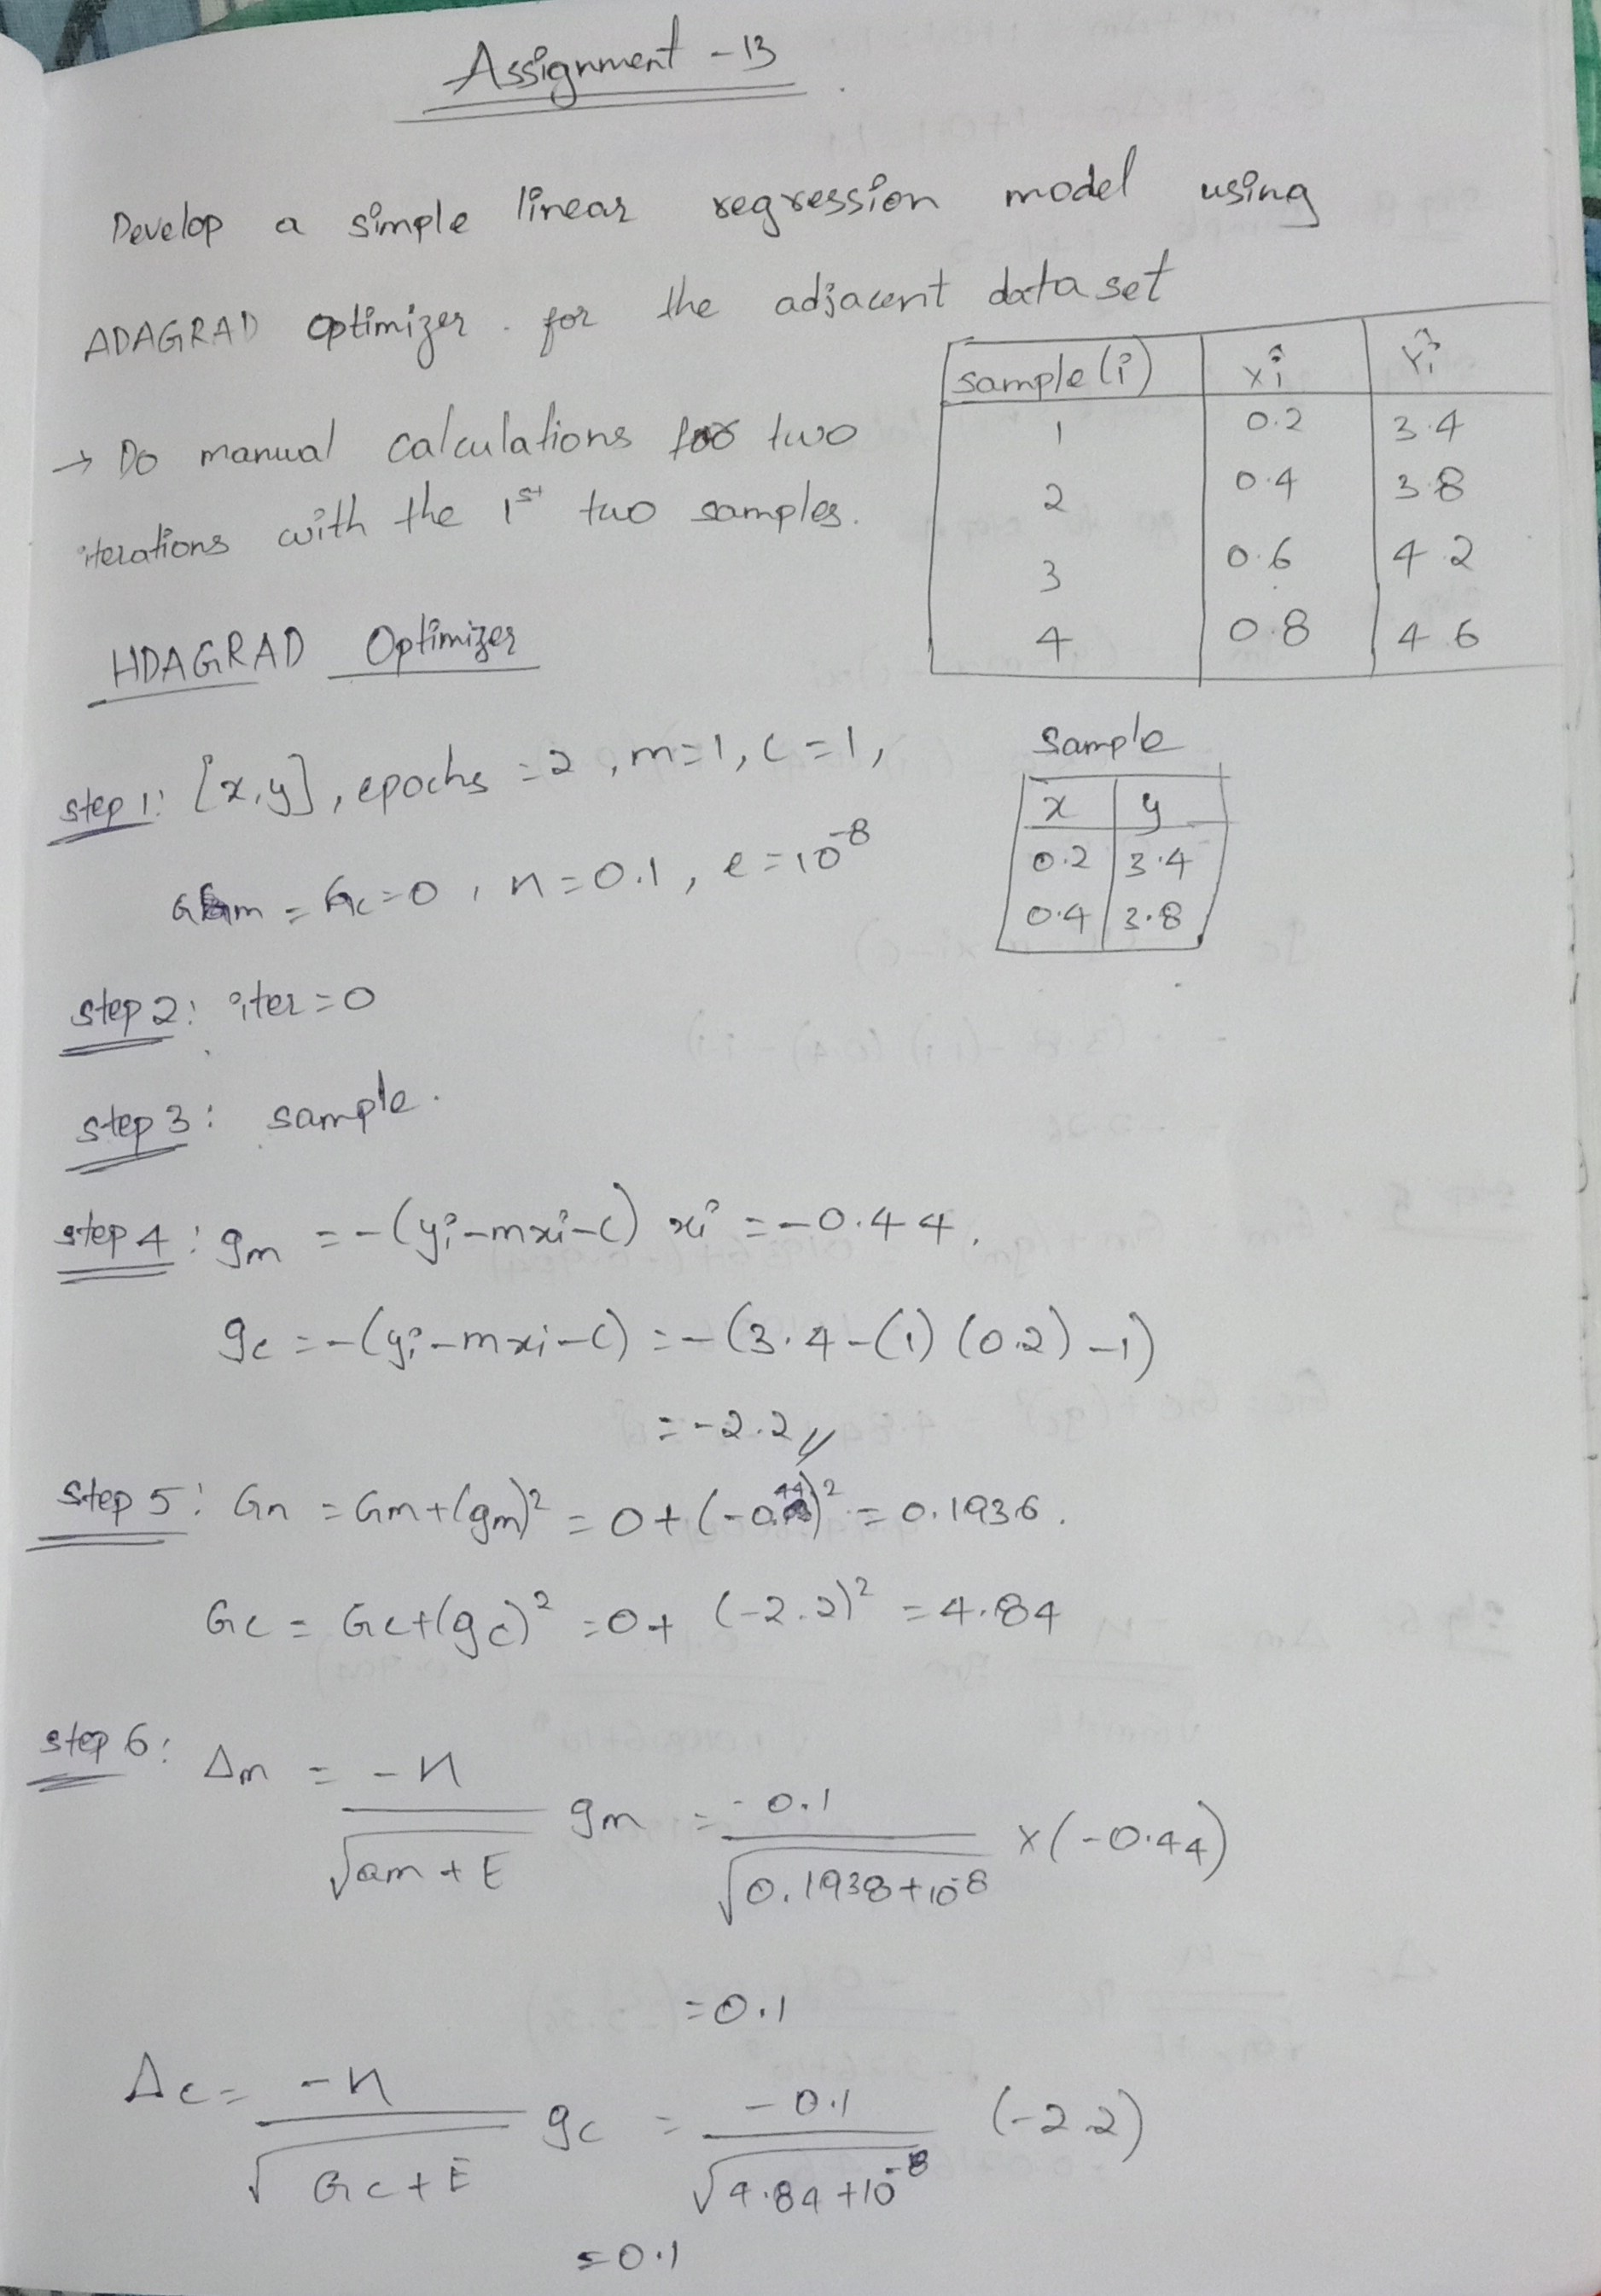 Assignment - 13
Develop a simple linear regression model using
ADAGRAD optimizer. for the adjacent data set
sample (i) xi Yi
1 0.2 3.4
2 0.4 3.8
3 0.6 4.2
4 0.8 4.6
→ Do manual calculations for two
iterations with the 1st two samples.
HDAGRAD Optimizer
step 1: [x,y], epochs = 2, m=1, c=1,
Gm = Gc = 0, n = 0.1, e = 10^-8
Sample
x y
0.2 3.4
0.4 3.8
step 2: iter = 0
step 3: sample.
step 4: gm = -(yi-mxi-c) xi = -0.44.
gc = -(yi-mxi-c) = -(3.4-(1)(0.2)-1)
= -2.2//
step 5: Gn = Gm+(gm)² = 0+(-0.44)² = 0.1936.
Gc = Gc+(gc)² = 0+ (-2.2)² = 4.84
step 6: Δm = -n / √am + E gm = -0.1 / √0.1938+10^-8 x(-0.44)
= 0.1
Δc = -n / √Gc+E gc = -0.1 / √4.84+10^-8 (-2.2)
= 0.1